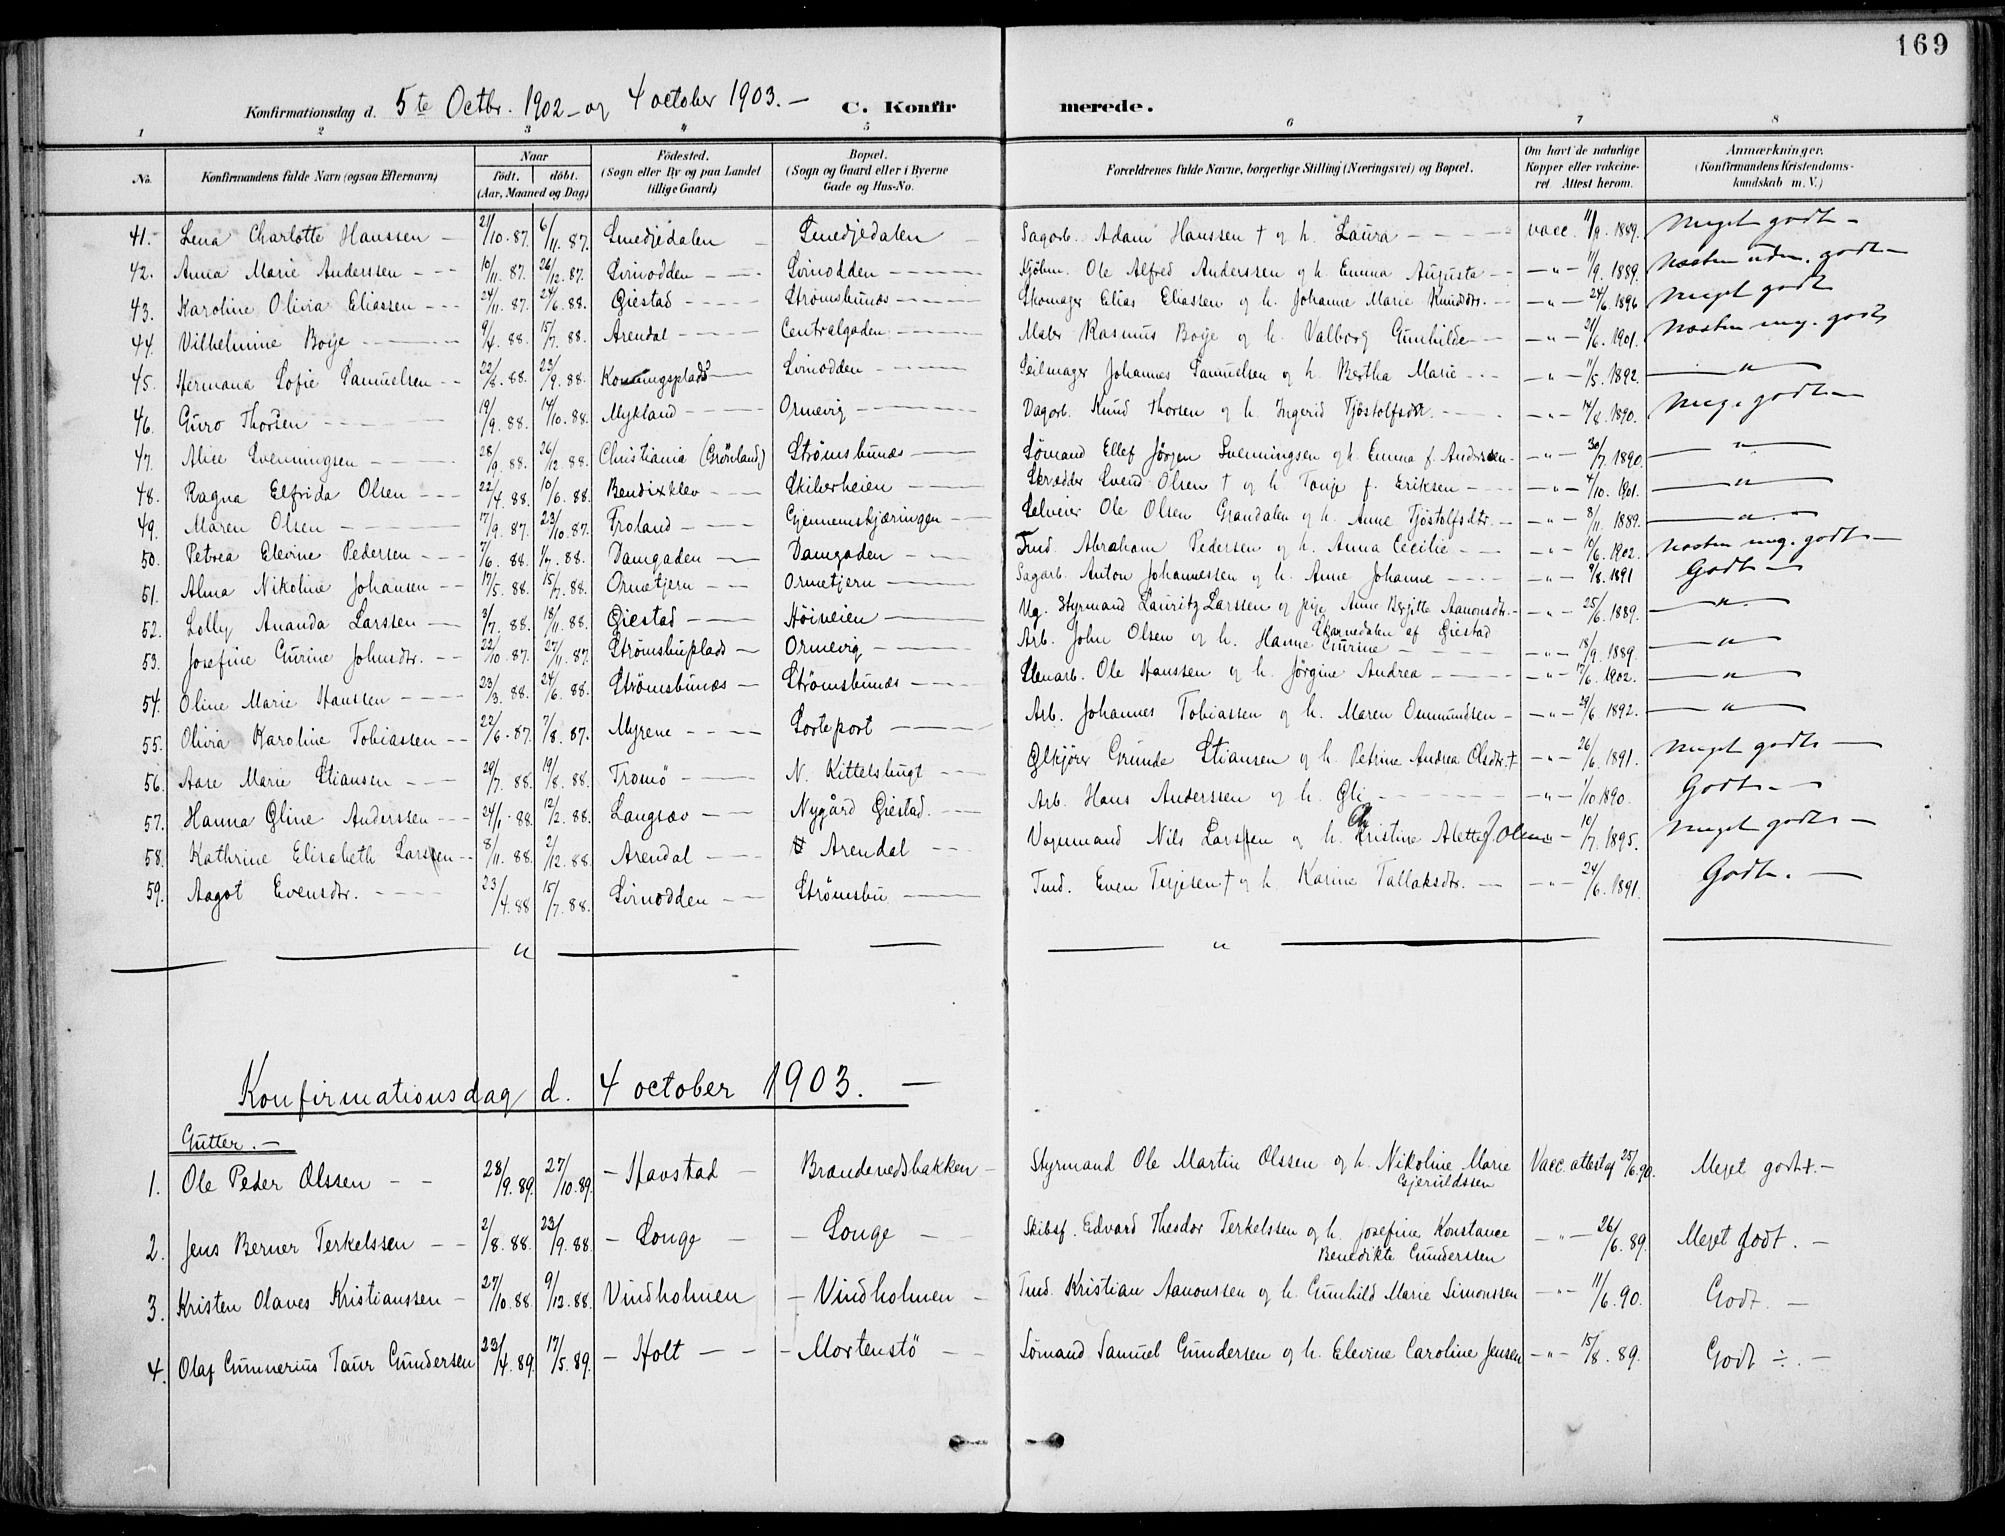 169
Konfirmationsdag d. 5te Octbr. 1902 - og 4 october 1903. - C. Konfirmerede.
1 2 3 4 5 6 7 8
No. Konfirmandens fulde Navn (ogsaa Efternavn) Naar født. døbt. (Aar, Maaned og Dag) Fødested. (Sogn eller By og paa Landet tillige Gaard) Bopæl. (Sogn og Gaard eller i Byerne Gade og Hus-No. Forældrenes fulde Navne, borgerlige Stilling (Næringsvei) og Bopæl. Om havt de naturlige Kopper eller vakcineret. Attest herom. Anmærkninger. (Konfirmandens Kristendomskundskab m. V.)
41. Lena Charlotte Hanssen - 21/10. 87. 6/11. 87. Smedjedalen - Smedjedalen - Sagarb. Adam Hanssen † og h. Laura - - - vacc. 11/9. 1889. Meget godt -
42. Anna Marie Anderssen - - - 10/11. 87. 26/12. 87. Svinodden - - - Svinodden - - - Kjøbm. Ole Alfred Anderssen og h. Emma Augusta - - - " - 11/9. 1889. Næsten udm. godt -
43. Karoline Olivia Eliassen - - - 24/11. 87. 24/6. 88. Giestad - - - Strømsbunæs - - - Skomager Elias Eliassen og h. Johanne Marie Knudsdtr. - - - " - 24/6. 1896 Meget godt
44. Vilhelmine Boye - - - 9/4. 88. 15/7. 88. Arendal - - - Centralgaden - - - Maler Rasmus Boye og h. Valborg Gunhilde - - - " - 21/6. 1901. Næsten meg. godt
45. Hermana Sofie Samuelsen - - 22/8. 88. 23/9. 88. Kongsplads - Svinodden - - - Seilmager Johannes Samuelsen og h. Bertha Marie - - - " - 11/5. 1892. - " -
46. Guro Thorsen - - - 19/9. 88. 14/10. 88. Mykland - - - Ormevig - - - Dagarb. Knud Thorsen og h. Ingerid Tjöstolfsdtr. - - - " - 14/8. 1890. Meg. godt -
47. Alise Svenningsen - - - 28/9. 88. 26/12. 88. Christiania (Grönland) Strømsbunæs - - Sømand Ellef Jörgen Svenningsen og h. Emma f. Anderssen - - " - 30/7. 1890. - " -
48. Ragna Elfrida Olsen - - - 22/4. 88. 10/6. 88. Bendixklev - - - Skilerheien - - - Skrædder Svend Olsen † og h. Tonje f. Eriksen - - - " - 4/10. 1901. - " -
49. Maren Olsen - - - 17/9. 87. 23/10. 87. Froland - - - Gjennemskjæringen - - Selveier Ole Olsen Grandalen og h. Anne Tjöstolfsdtr. - - " - 8/11. 1889. - " -
50. Petrea Elevine Pedersen - - - 7/6. 88. 1/7. 88. Damgaden - - Damgaden - Tmd. Abraham Pedersen og h. Anna Cecilie - - - " - 10/6. 1902. Næsten meg. godt -
51. Alma Nikoline Johansen - - 17/5. 88. 15/7. 88. Ormetjern - - Ormetjern - - Sagarb. Anton Johannessen og h. Anne Johanne - - - " - 9/8. 1891 Godt -
52. Lolly Ananda Larssen - - 3/7. 88. 18/11. 88. Giestad - - - Höiveien - - - Ug. Styrmand Lauritz Larssen og pige Anne Birgitte Aanonsdtr. - - " - 25/6. 1889. - " -
Skarnedalen af Giestad
53. Josefine Gurine Johnsdtr. - - 22/10. 87. 27/11. 87. Strømsbuplads - Ormevig - - - Arb. John Olsen og h. Hanne Gurine - - - " - 18/9. 1889. - " -
54. Oline Marie Hanssen - - - 23/3. 88. 24/6. 88. Strømsbunæs - Strømsbunæs - - Stenarb. Ole Hanssen og h. Jörgine Andrea - - - " - 17/6. 1902. - " -
55. Olivia Karoline Tobiassen - - 22/6. 87. 7/8. 87. Myrene - - - Sorteport - - - Arb. Johannes Tobiassen og h. Maren Ommundsen - - " - 29/6 1892. - " -
56. Aase Marie Stiansen - - 29/7. 88. 19/8. 88. Tromö - - - N. Kittelsbugt - - - Ølkjörer Grunde Stiansen og h. Petrine Andrea Olsdtr. † - " - 26/6. 1891. Meget godt -
57. Hanna Oline Anderssen - - - 24/1. 88. 12/2. 88. Langsæv - - - Nygård Giestad. - - Arb. Hans Anderssen og h. Oli - - - " - 1/10 1890. Godt. -
58. Kathrine Elisabeth Larssen - - 8/11. 88. 2/12. 88. Arendal - - - Arendal - - - Vognmand Nils Larssen og h. Christine Alette f. Olsen " - 10/7. 1895. Meget godt -
59. Aagot Evensdtr. - - - 23/4. 88 15/7. 88. Svinodden - - Strømsbu - - - Tmd. Even Terjesen † og h. Karine Tallaksdtr. - - " - 24/6. 1891. Godt. -
- " - - " -
Konfirmationsdag d. 4 october 1903. -
Gutter. -
1. Ole Peder Olssen - - 28/9. 89. 27/10. 89. - Havstad - Brændevedsbakken - Styrmand Ole Martin Olssen og h. Nikoline Marie Gjeruldssen Vacc. attest af 25/6. 90. Meget godt +. -
2. Jens Berner Terkelssen - - 2/8. 88. 23/9. 88. - Songe - - Songe - - Skibsf. Edvard Theodor Terkelssen og h. Josefine Konstance Benedikte Gunderssen - " - 26/6. 89. Meget godt. -
3. Kristen Olaves Kristianssen - 27/10. 88. 9/12. 88. Vindholmen - Vindholmen - Tmd. Kristian Aanonssen og h. Gunhild Marie Simonssen - " - 11/6. 90. Godt. -
4. Olaf Gunnerius Taur Gundersen 23/4. 89. 17/5. 89. - Holt - - - Mortenstö - - Sømand Samuel Gundersen og h. Elevine Caroline Jensen - " - 15/8. 89. Godt ÷. -